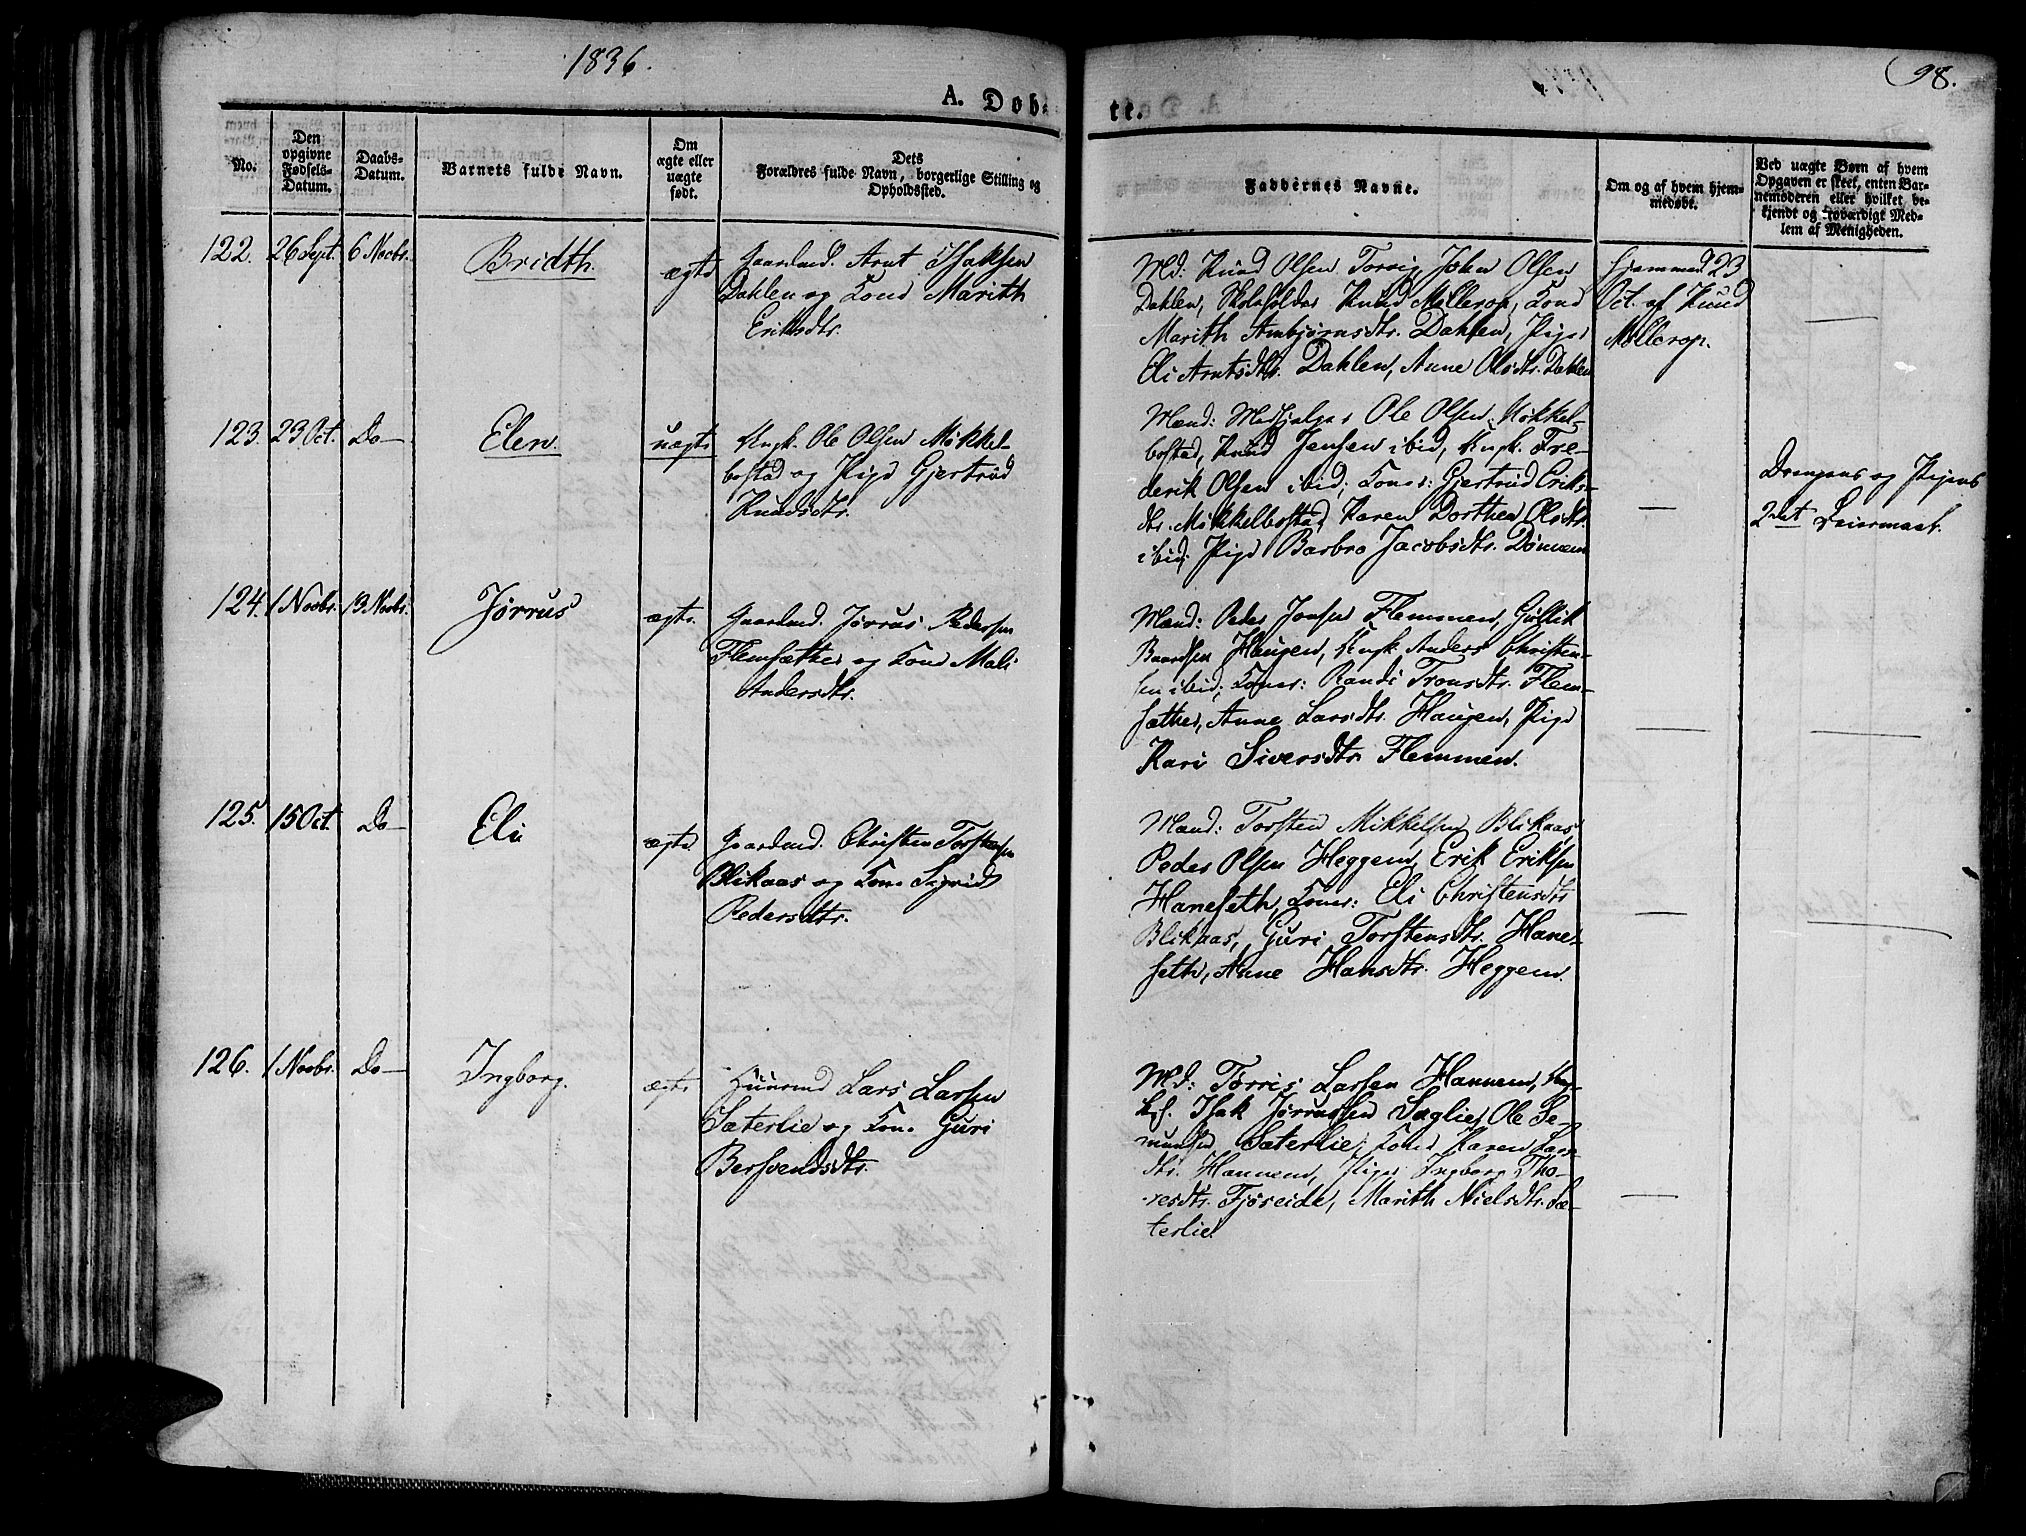 1836.
98.
A. Døb-
te.
No.
Den
opgivne
Fødsels-
Datum.
Daabs-
Datum.
Barnets fulde Navn.
Om
ægte eller
uægte
født.
Dets
Forældres fulde Navn, borgerlige Stilling og
Opholdssted.
Faddernes Navne.
Om og af hvem hjem-
medøbt.
Ved uægte Børn af hvem
Opgaven er skeet, enten Bar-
nemoderen eller hvilket be-
kjendt og troværdigt Med-
lem af Menigheden.
122. 26 Sept. 6 Novbr. Bridth. ægte
Gaardmd. Arnt Isaksen
Dahlen og Kone Marith
Eriksdtr.
Md: Knud Olsen Torvig, John Olsen
Dahlen, Skoleholder Knud Møllerop, Kone
Marith Ambjørnsdtr. Dahlen, Pige
Eli Arntsdtr. Dahlen, Anne Olsdtr. Dahlen
Hjemmed. 23
Oct. af Knud
Møllerop.
123. 23 Oct. Do — Elen. uægte
Ungk. Ole Olsen Mökkel-
bostad og Pige Gjertrud
Knudsdtr.
Mænd: Medhjelper Ole Olsen Mökkel-
bostad, Knud Jensen ibid, Ungk. Fre-
derik Olsen ibid; Koner: Gjertrud Eriks-
dtr. Mökkelbostad, Karen Dorthea Olsdtr.
ibid; Pige Barbro Jacobsdtr.
—
Drengens og Pigens
2det Leiermaal.
124. 1 Novbr. 13 Novbr. Jörrus ægte.
Gaardmd. Jörrus Pedersen
Flemsæther og Kone Mali
Andersdtr.
Mænd: Peder Jonsen Flemmen, Gullik
Baardsen Haugen, Ungk. Anders Christen-
sen ibid; Koner: Randi Tronsdtr. Flem-
sæther, Anne Larsdtr. Haugen, Pige
Kari Siversdtr. Flemmen.
— —
125. 15 Oct. Do — Eli ægte
Gaardmd. Christen Torstensen
Blikaas og Kone Sigrid
Pedersdtr.
Mænd: Torsten Mikkelsen Blikaas,
Peder Olsen Heggem, Erik Eriksen
Haneseth, Koner: Eli Christensdtr
Blikaas, Guri Torstensdtr. Hane-
seth, Anne Hansdtr. Heggem.
— —
126. 1 Novbr. Do — Ingborg. ægte
Huusmd Lars Larsen
Sæterlie og Kone Guri
Bersvendsdtr.
Md: Torris Larsen Hannem, Ung-
kf. Isak Jörrussen Saglie, Ole Se-
mundsen Sæterlie, Kone Karen Lars-
dtr. Hannem, Piger Ingborg Tho-
resdtr. Fjöseide, Marith Nielsdtr. Sæ-
terlie.
—